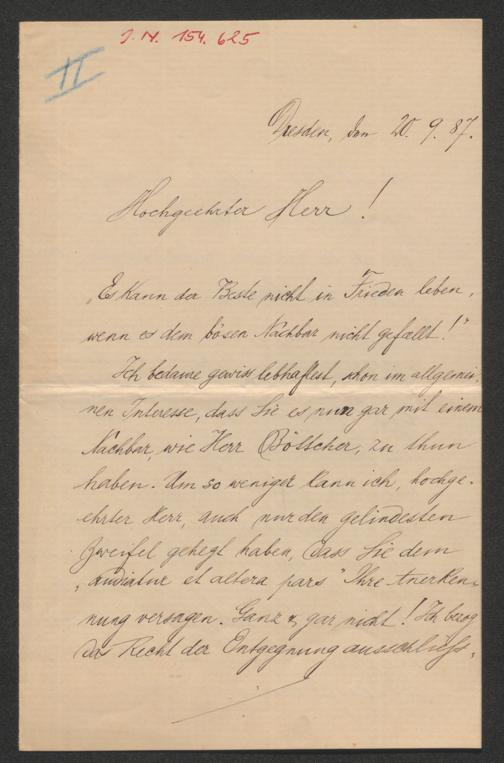 J. N. 154.625
II
Dresden, den 20. 9. 87.
Hochgeehrter Herr!
„Es kann der Beste nicht in Frieden leben,
wenn es dem bösen Nachbar nicht gefällt!"
Ich bedaure gewiss lebhaftest, schon im allgemei-
nen Interesse, dass Sie es nun gar mit einem
Nachbar, wie Herr Bötticher, zu thun
haben. Um so weniger kann ich, hochge-
ehrter Herr, auch nur den gelindesten
Zweifel gehegt haben, dass Sie dem
„audiatur et altera pars" Ihre Anerken-
nung versagen. Ganz u. gar nicht! Ich bezog
das Recht der Entgegnung ausschliess-